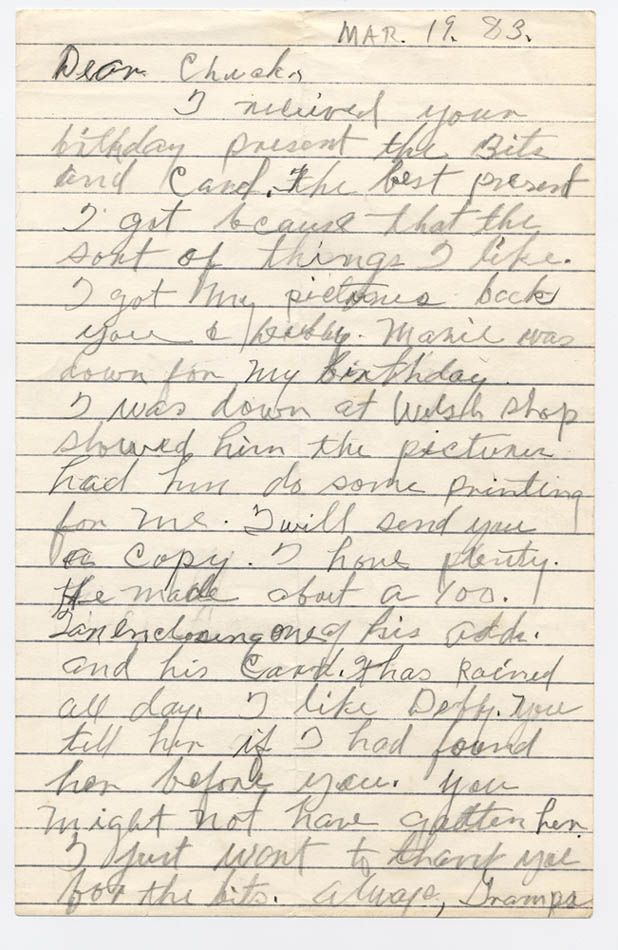 MAR. 19. 83.
Dear Chuck,
I recieved your
bithday present the Bits
and Card. The best present
I got bcause that the
sort of things I like.
I got My pictures back
you & Debby. Marie was
down for My birthday.
I was down at Welsh Shop
showed him the pictures
had him do some printing
for me. I will send you
a copy. I have plenty.
He made about a 100.
I an Enclosing one of his adds.
and his Card. It has Rained
all day. I like Debby. You
tell her if I had found
her before you. you
might not have gotten her.
I just want to thank you
for the bits. always, Grampa